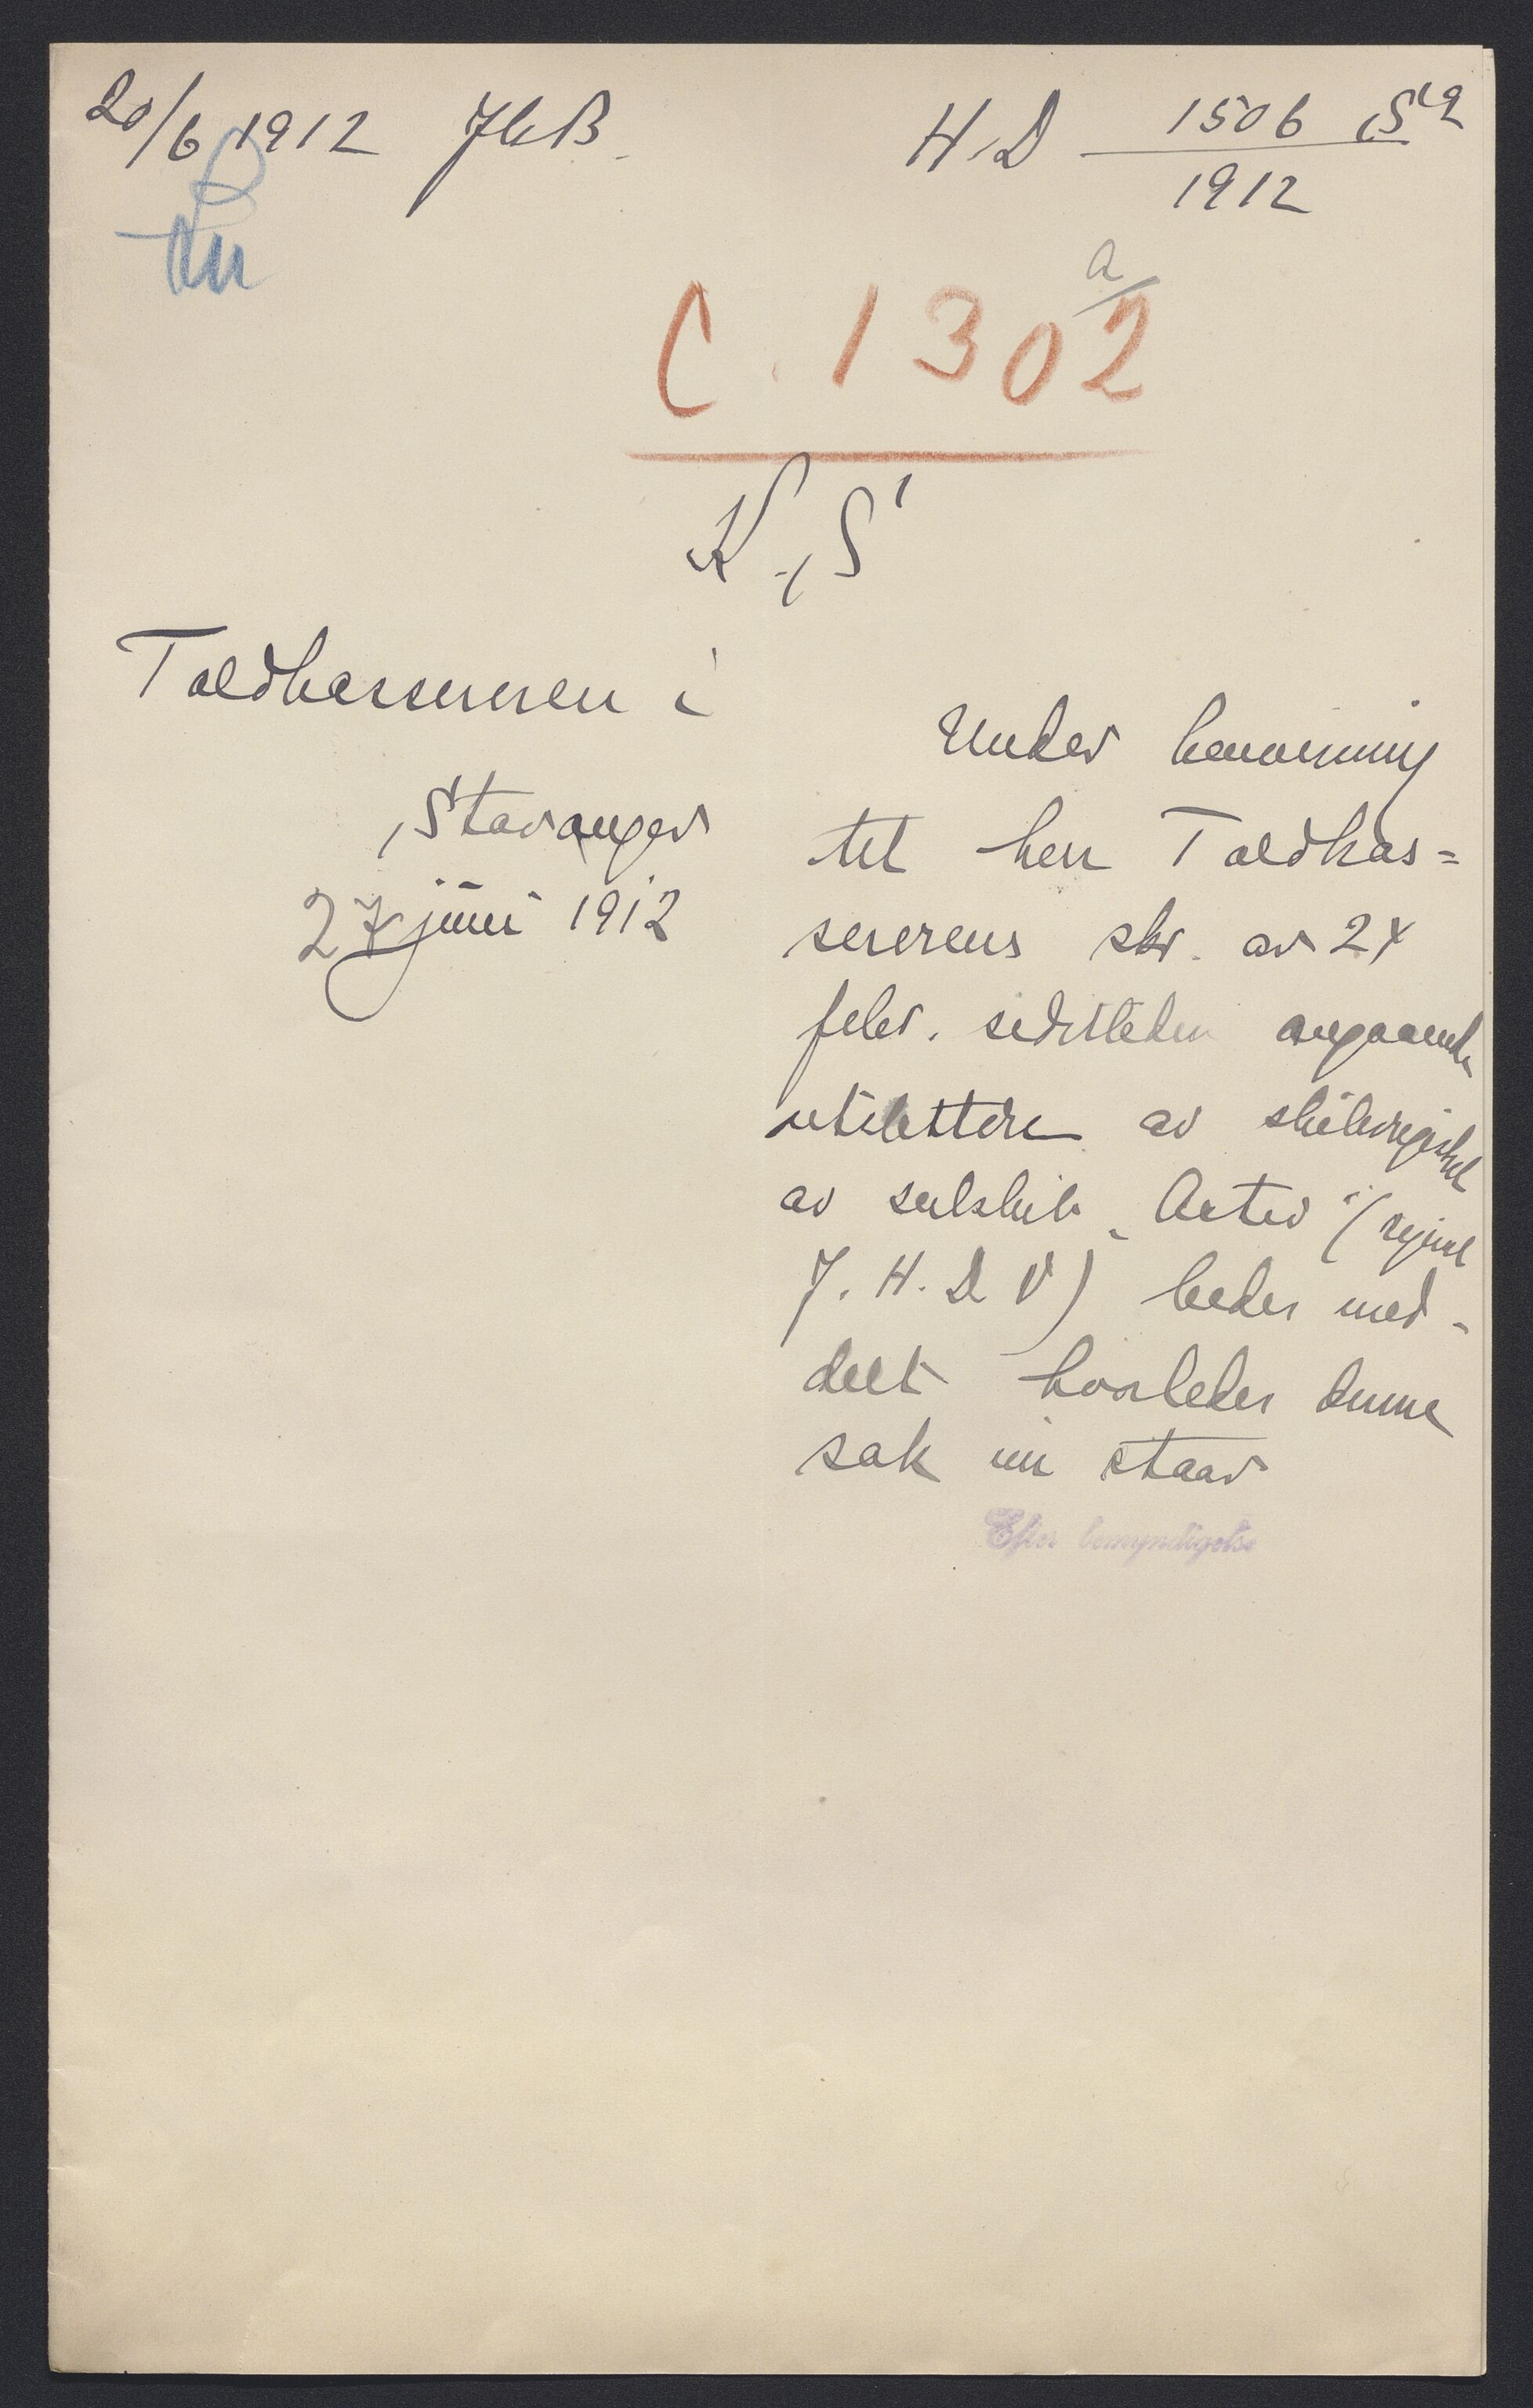 20/6 1912 JHB.
H.D 1506 S19
1912
a/
C. 1302
K., S'
Toldkassereren i
Stavanger
27 juni 1912
Under henvisning
til herr Toldkas=
sererens skr. av 24
febr. sidstleden angaaende
utslettelse av skibsregistret
av seilskib "Activ" (kjend.
J. H. D V) bedes med-
delt hvorledes denne
sak nu staar
Efter bemyndigelse